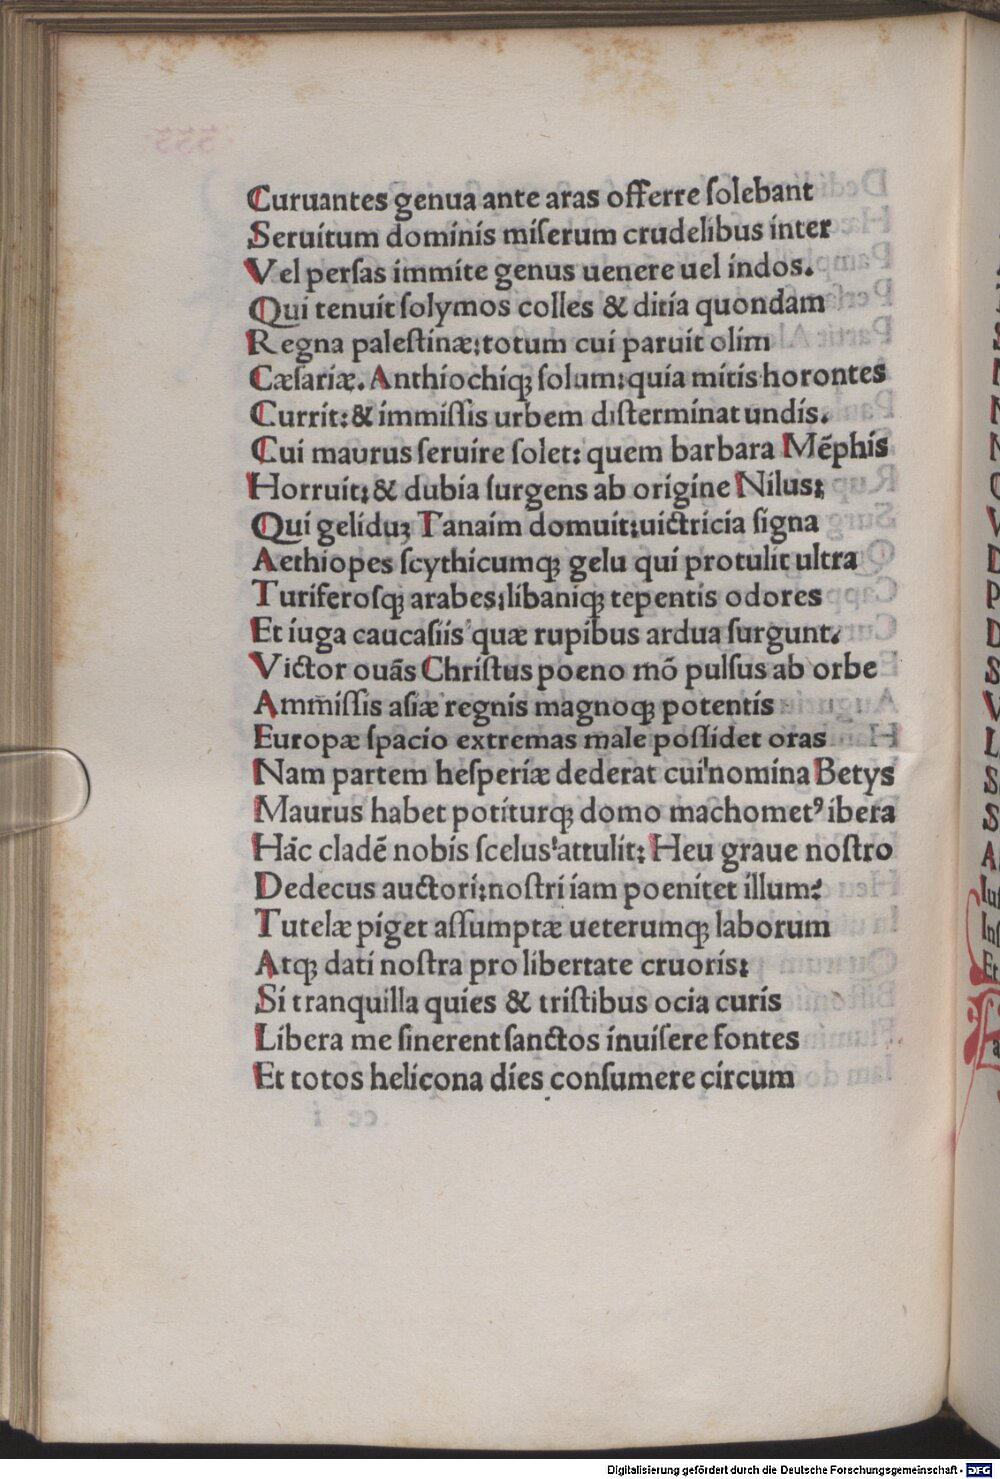 Curuantes genua ante aras offerre ſolebant
Seruitum dominis miſerum crudelibus inter
Vel perſas immite genus uenere uel indos.
Qui tenuit ſolymos colles & ditia quondam
Regna paleſtinæ: totum cui paruit olim
Cæſariæ. Anthiochiqꝫ ſolum: quia mitis horontes
Currit: & immiſſis urbem diſterminat undis.
Cui maurus ſeruire ſolet: quem barbara Mēphis
Horruit: & dubia ſurgens ab origine Nilus:
Qui geliduꝫ Tanaim domuit: uictricia ſigna
Aethiopes ſcythicumqꝫ gelu qui protulit ultra
Turiferoſqꝫ arabes: libaniqꝫ tepentis odores
Et iuga caucaſiis quæ rupibus ardua ſurgunt.
Victor ouās Chriſtus poeno mō pulſus ab orbe
Ammiſſis aſiæ regnis magnoqꝫ potentis
Europæ ſpacio extremas male poſſidet oras
Nam partem heſperiæ dederat cui nomina Betys
Maurus habet potiturqꝫ domo machometꝰ ibera
Hāc cladē nobis ſcelus attulit: Heu graue noſtro
Dedecus auctori: noſtri iam poenitet illum:
Tutelæ piget aſſumptæ ueterumqꝫ laborum
Atqꝫ dati noſtra pro libertate cruoris:
Si tranquilla quies & triſtibus ocia curis
Libera me ſinerent ſanctos inuiſere fontes
Et totos helicona dies conſumere circum
Digitalisierung gefördert durch die Deutsche Forschungsgemeinschaft - DFG